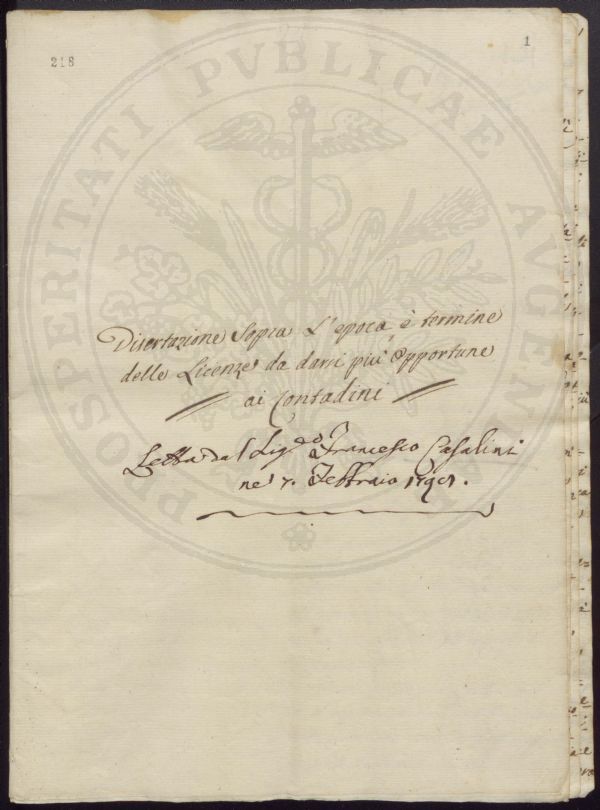 218
1
PROSPERITATI PVBLICAE AVGENDAE
Disertazione Sopra L'epoca, è termine
delle Licenze da darsi più Opportune
ai Contadini
Letta dal Sig.re D. Francesco Casalini
ne' 7. Febbraio